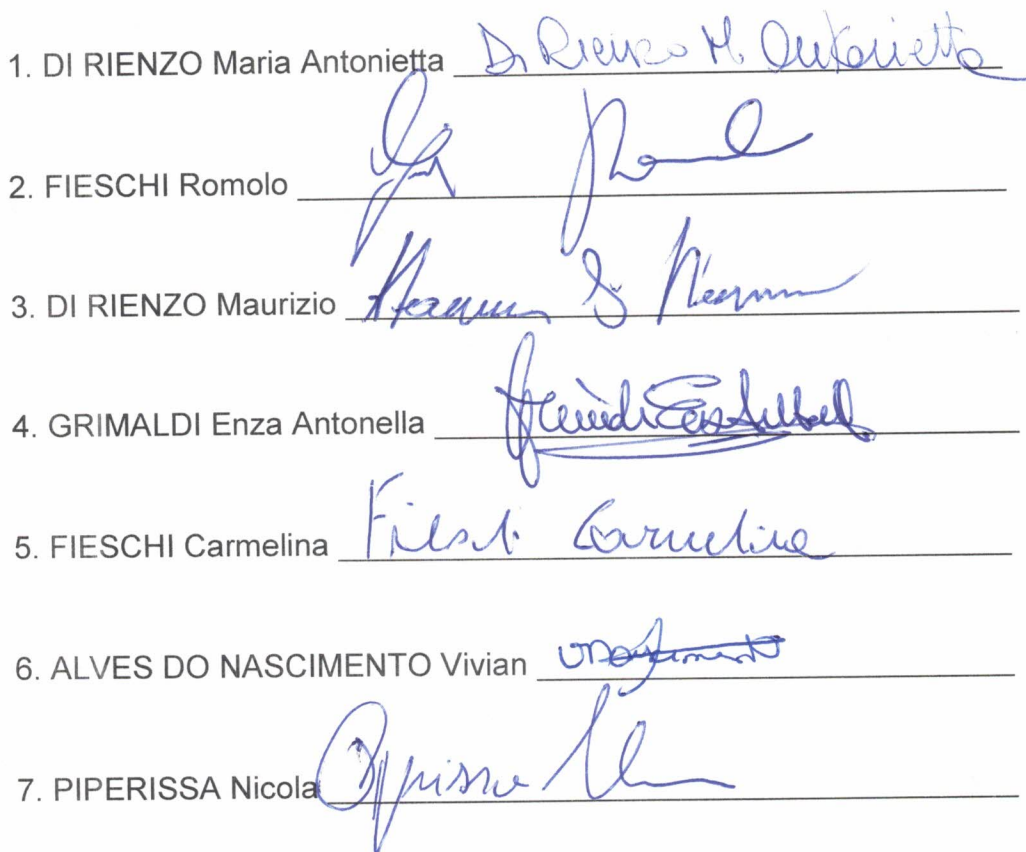 1. DI RIENZO Maria Antonietta Di Rienzo M. Antonietta
2. FIESCHI Romolo
3. DI RIENZO Maurizio
4. GRIMALDI Enza Antonella
5. FIESCHI Carmelina Fieschi Carmelina
6. ALVES DO NASCIMENTO Vivian
7. PIPERISSA Nicola